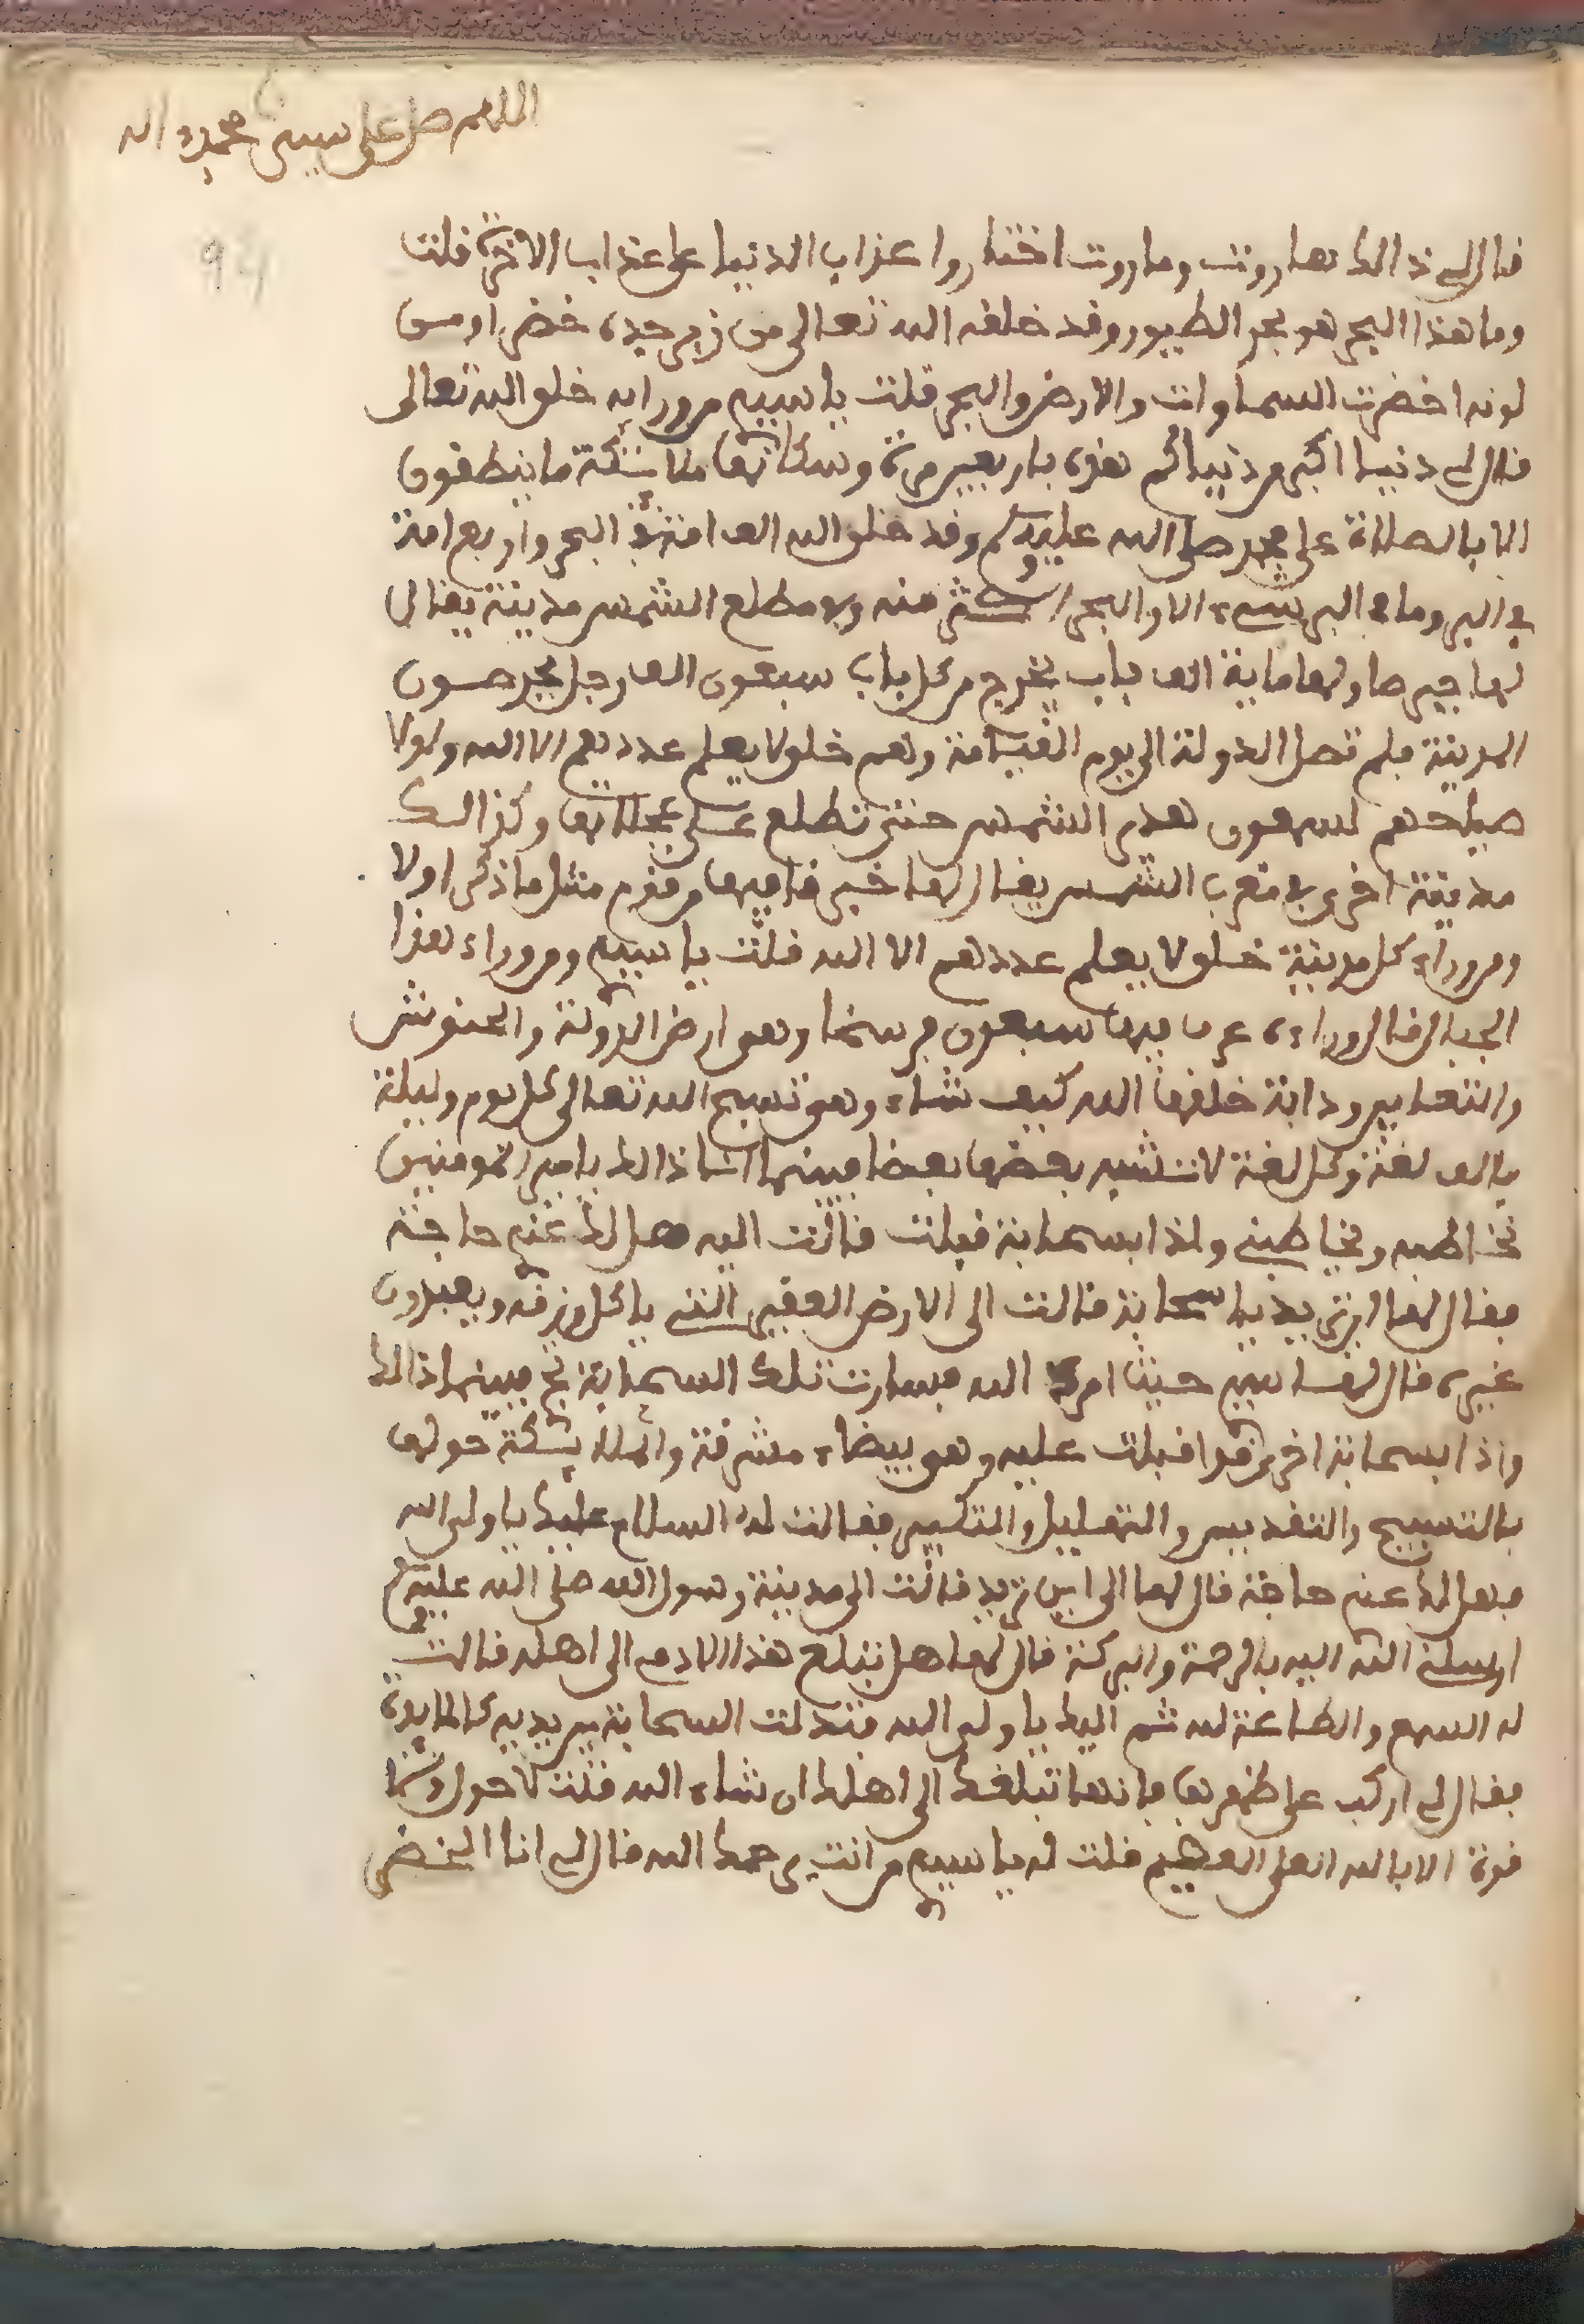 اللهم صل على سيدنا محمد واله
94
قال لي ذالك هاروت وماروت اختاروا عذاب الدنيا على عذاب الاخرة قلت
وما هذا البحر هو بحر الطيور وقد خلقه الله تعالى من زبرجدة خضرا ومن
لونه اخضرت السماوات والارض والبحر قلت يا سيدي من وراه خلق الله تعالى
قال لي دنيا اكبر من دنياكم هذه باربعين مرة وسكانها ملائكة ما ينطقون
الا بالصلاة على محمد صلى الله عليه وسلم وقد خلق الله الف امة في البحر واربع امة
في البر وما في البر شيء الا والبحر اكثر منه وفي مطلع الشمس مدينة يقال
لها جبرصا ولها ماية الف باب يخرج من كل باب سبعون الف رجل يحرصون
المدينة فلم تصل الدولة الى يوم القيامة وهم خلق لا يعلم عددهم الا الله ولولا
صياحهم لسمعون هدير الشمس حتى تطلع على عجلاتها وكذالك
مدينة اخرى في مغرب الشمس يقال لها خبرقا فيها من قوم مثل ما ذكر اولا
ومن وراء كل مدينة خلق لا يعلم عددهم الا الله قلت يا سيدي ومن وراء هذا
الجبال قال وراءه عرما فيها سبعون فرسخا وهي ارض الدولة والحنوش
والثعابين ودابة خلقها الله كيف شاء وهي تسبح الله تعالى كل يوم وليلة
بالف لغة وكل لغة لا تشبه بعضها بعضا فبينما انا ذالك يا امير المومنين
نخاطبه ويخاطبني واذا بسحابة قبلت قالت اليه هل لك عني حاجة
فقال لها اين تريد يا سحابة قالت الى الارض الفقير التي ياكل رزقه ويعبدون
غيره قال لها سيري حيث امرك الله فسارت تلك السحابة فبينما ذالك
واذا بسحابة اخرى قد اقبلت عليه وهي بيضاء مشرقة والملائكة حولها
بالتسبيح والتقديس والتهليل والتكبير فقالت له السلام عليك يا ولي الله
فهل لك عني حاجة قال لها الى اين تريد قالت الى مدينة رسول الله صلى الله عليه وسلم
ارسلني الله اليه بالرحمة والبركة قال لها هل تبلغ هذا الادمي الى اهله قالت
له السمع والطاعة لله ثم اليك يا ولي الله فتدلت السحابة بين يديه كالمايدة
فقال لي اركب على ظهرها فانها تبلغك الى اهلك ان شاء الله قلت لا حول ولا
قوة الا بالله العلي العظيم قلت له يا سيدي من انت يرحمك الله قال لي انا الخضر